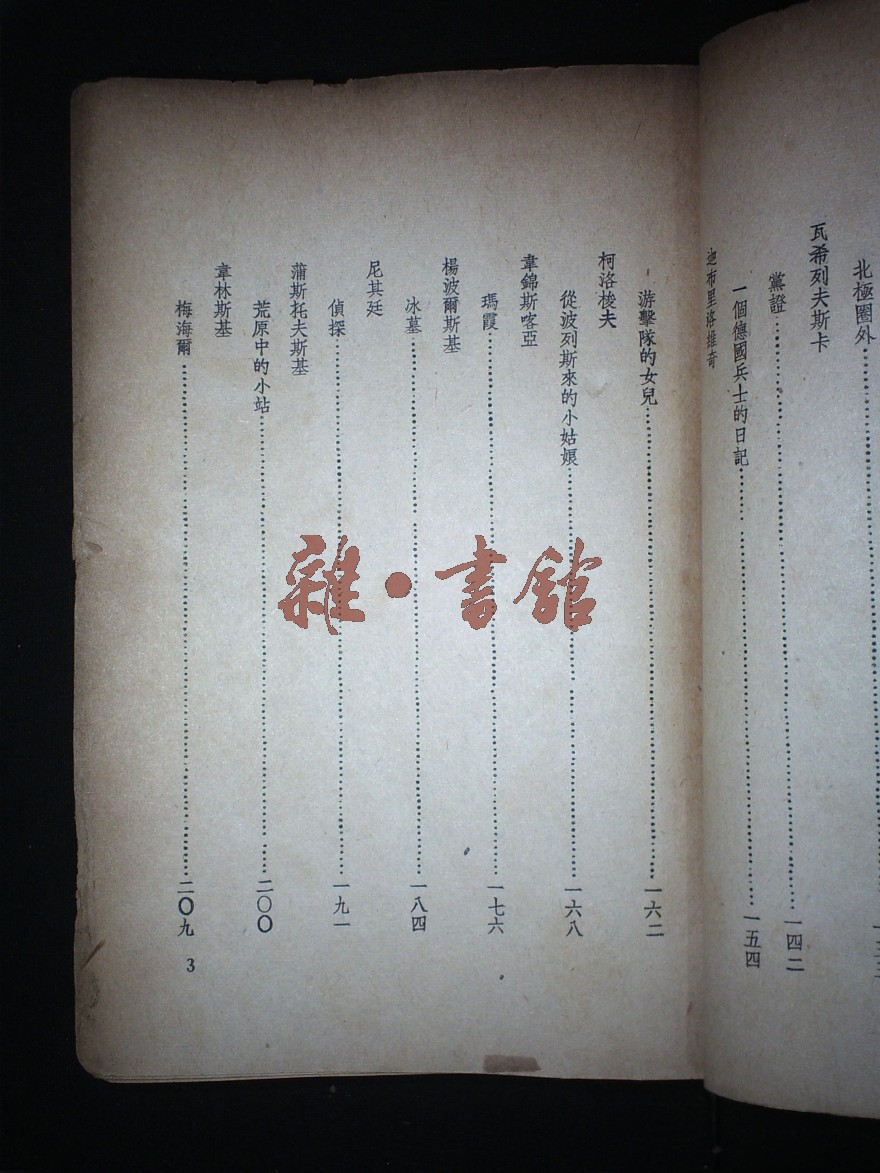 北極圈外
瓦希列夫斯卡
黨證 一四二
一個德國兵士的日記 一五四
迦布里洛維奇
游擊隊的女兒 一六二
柯洛梭夫
從波列斯來的小姑娘 一六八
韋錦斯喀亞
瑪霞 一七六
楊波爾斯基
冰墓 一八四
尼其廷
偵探 一九一
蒲斯托夫斯基
荒原中的小站 二〇〇
韋林斯基
梅海爾 二〇九
3
雜·書館